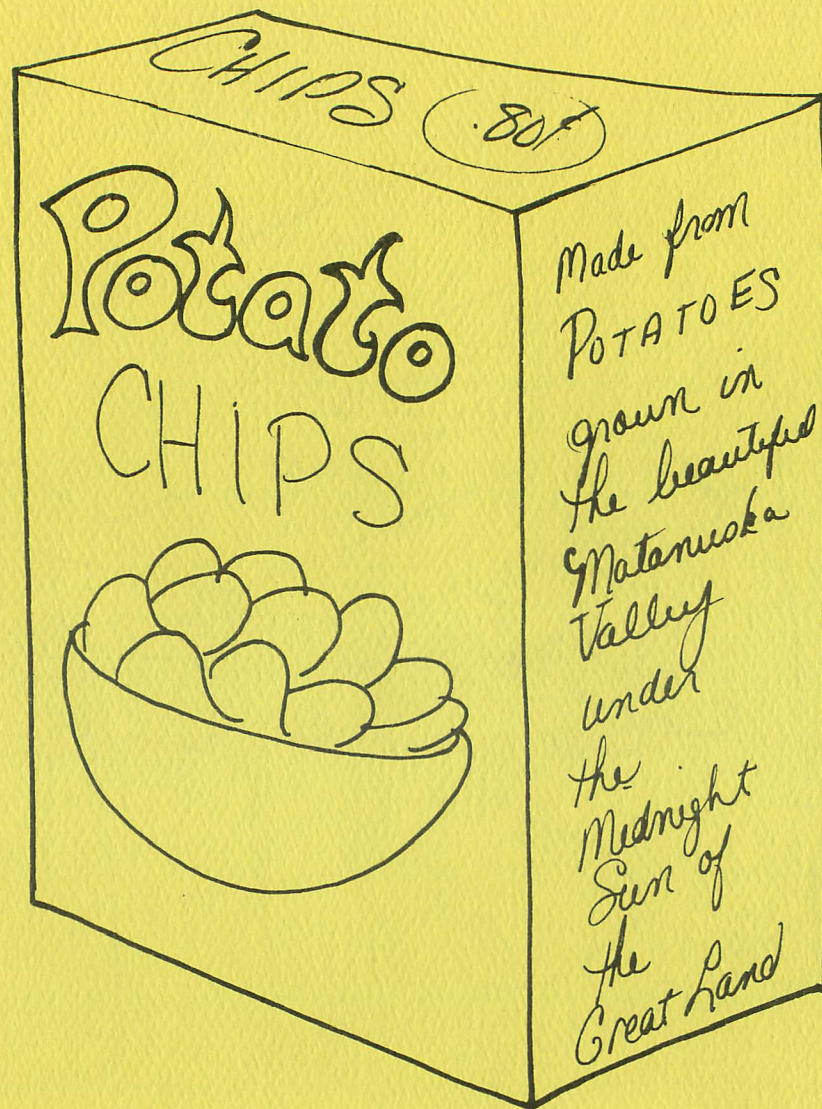 CHIPS .80¢
Potato
CHIPS
Made from
POTATOES
grown in
the beautiful
Matanuska
Valley
under
the
Midnight
Sun of
the
Great Land